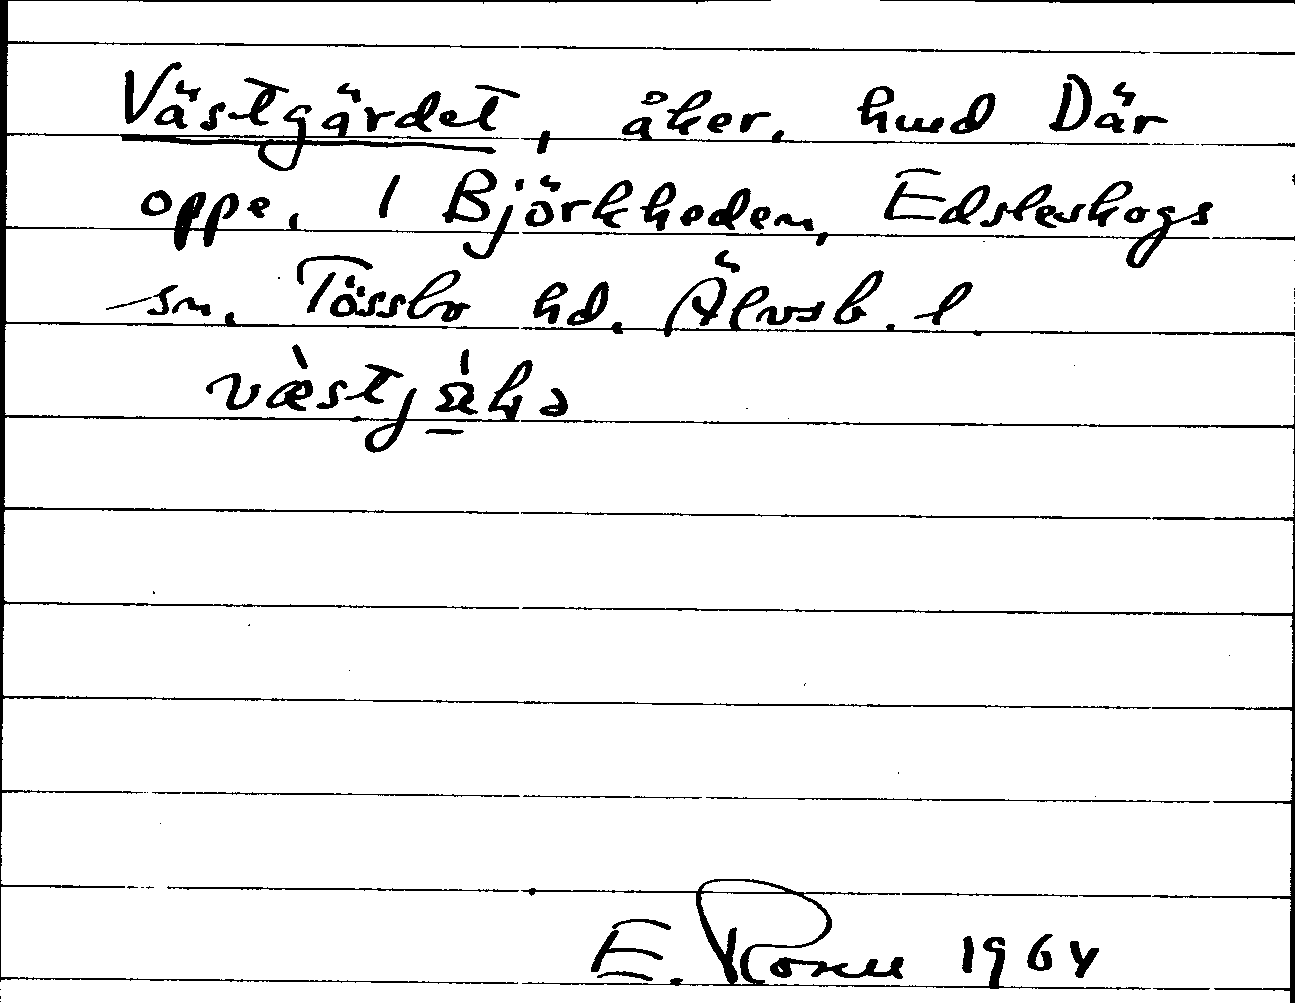 Västgärdet, åker. hmd Där
oppe. 1 Björkheden, Edsleskogs
sn. Tössbo hd. Älvsb. l.
E. Rosell 1964